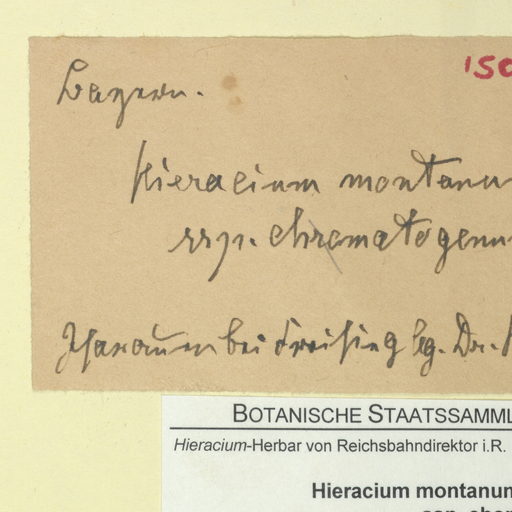 Bayern.
150
Hieracium montanu
ssp. chromatogenu
Isarauen bei Freising lg. Dr.
BOTANISCHE STAATSSAMML
Hieracium-Herbar von Reichsbahndirektor i.R.
Hieracium montanum